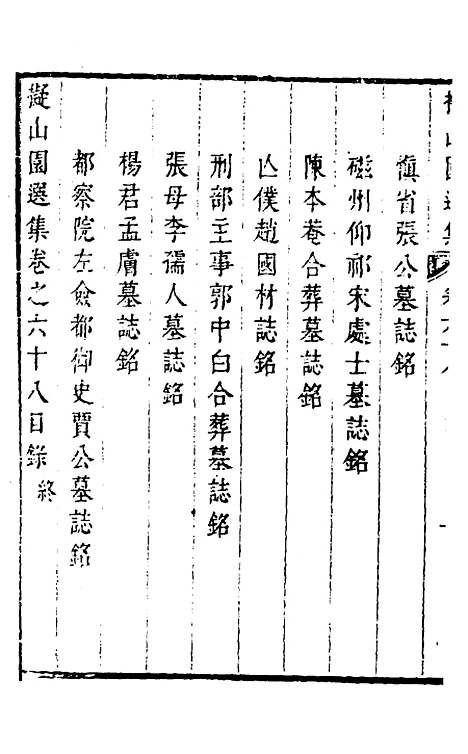 慎省張公墓誌銘
磁州仰祁宋處士墓誌銘
陳本菴合葬墓誌銘
亾僕趙國材誌銘
刑部主事郭中白合葬墓誌銘
張母李孺人墓誌銘
楊君孟膚墓誌銘
都察院左僉都御史賈公墓誌銘
擬山園選集卷之六十八目錄終